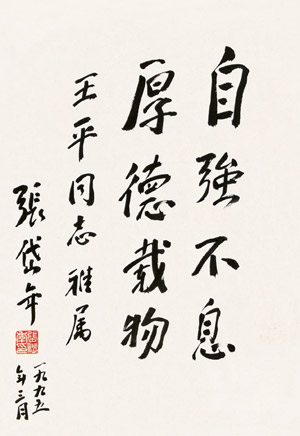 自強不息
厚德載物
王平同志雅属
張岱年
一九九五
年三月